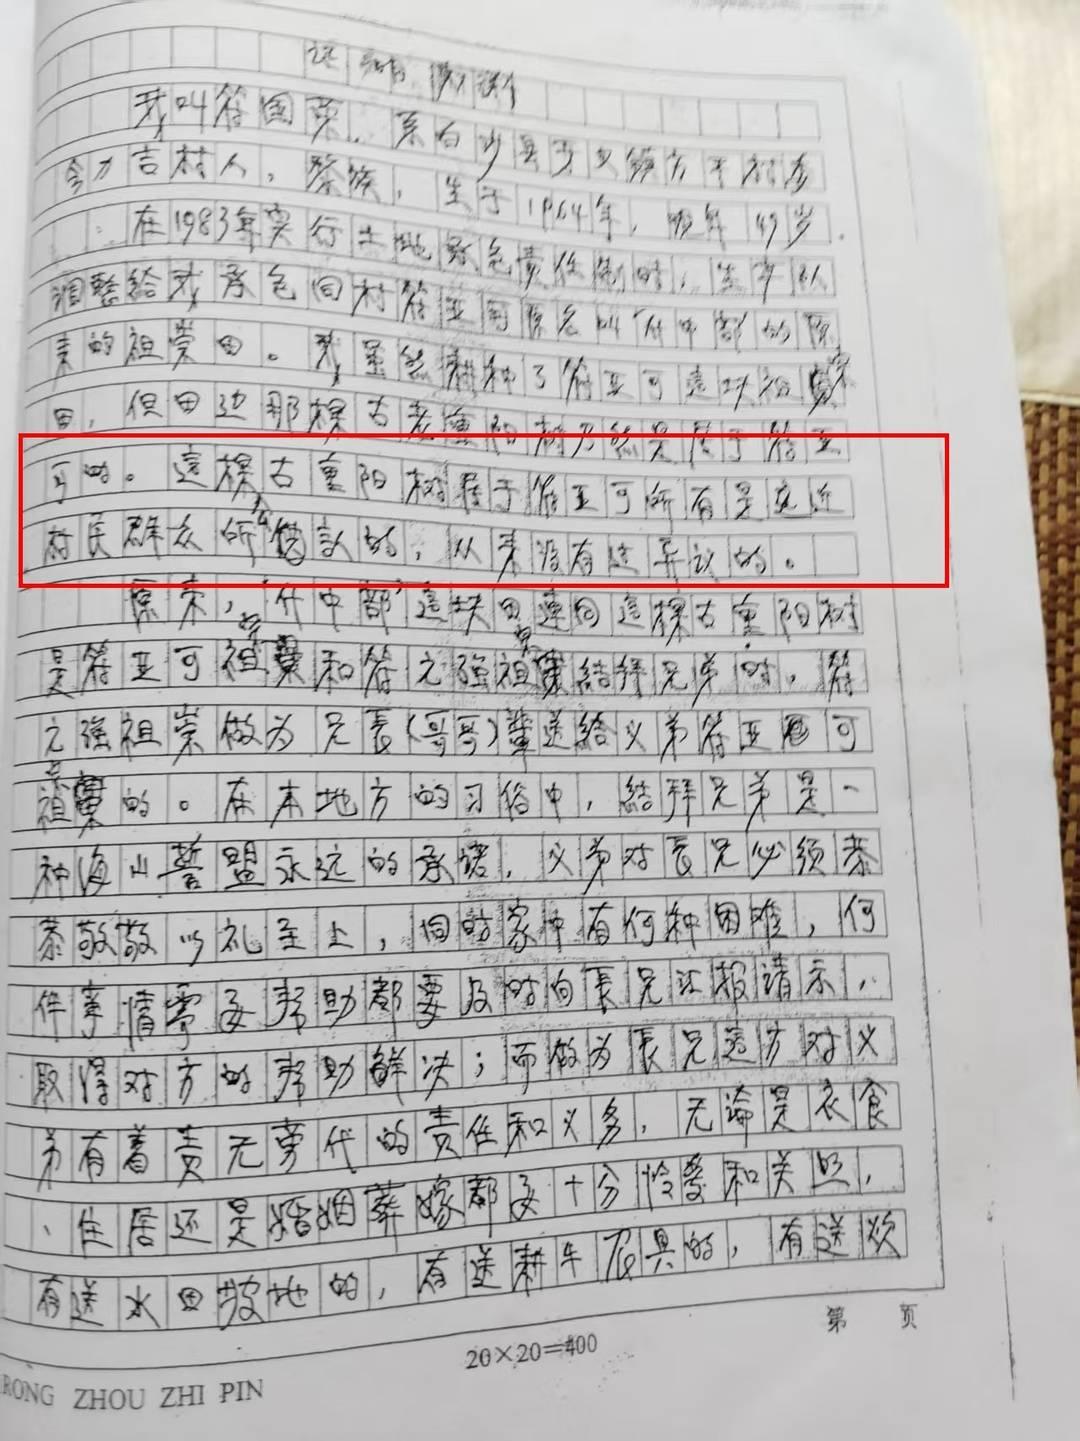 我叫符国荣，系白沙县牙叉镇方平村委
会力言村人，黎族，生于1964年，现年49岁.
在1983年实行土地承包责任制时，生产队
调整给我承包同村符亚可原名叫"什中部"的原
来的祖崇田。我虽然耕种了符亚可这块祖崇
田，但田边那棵古老重阳树乃然是属于符亚
可的。這棵古重阳树属于符亚可所有是远近
村民群众所公认的，从来没有过异议的。
原来，"什中部"這块田連同這棵古重阳树
是符亚可祖崇和符元强祖崇結拜兄弟时，符
元强祖崇做为兄長(哥哥)辈送給义弟符亚可
祖崇的。在本地方的习俗中，結拜兄弟是一
种海山誓盟永远的承诺，义弟对長兄必须恭
恭敬敬以礼至上，同时家中有何种困难，何
件事情需要帮助都要及时向長兄汇报请示，
取得对方的帮助解决；而做为長兄這方对义
弟有着责无旁代的责任和义务，无论是衣食
、住居还是婚姻葬嫁都要十分怜爱和关照，
有送水田坡地的，有送耕牛农具的，有送炊
第 页
20×20=400
RONG ZHOU ZHI PIN